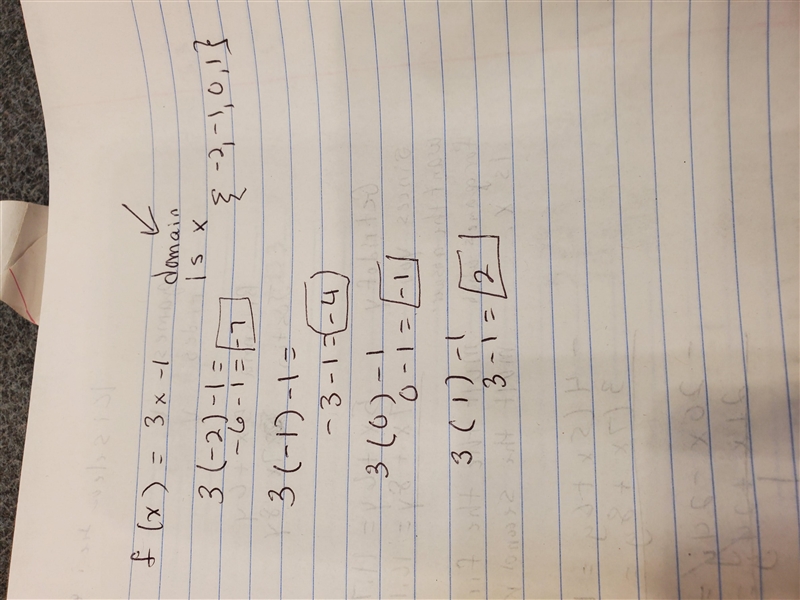 f(x) = 3x - 1
domain
is x
{ -2, -1, 0, 1 }
3(-2) - 1 =
-6 - 1 = -7
3(-1) - 1 =
-3 - 1 = -4
3(0) - 1
0 - 1 = -1
3(1) - 1
3 - 1 = 2